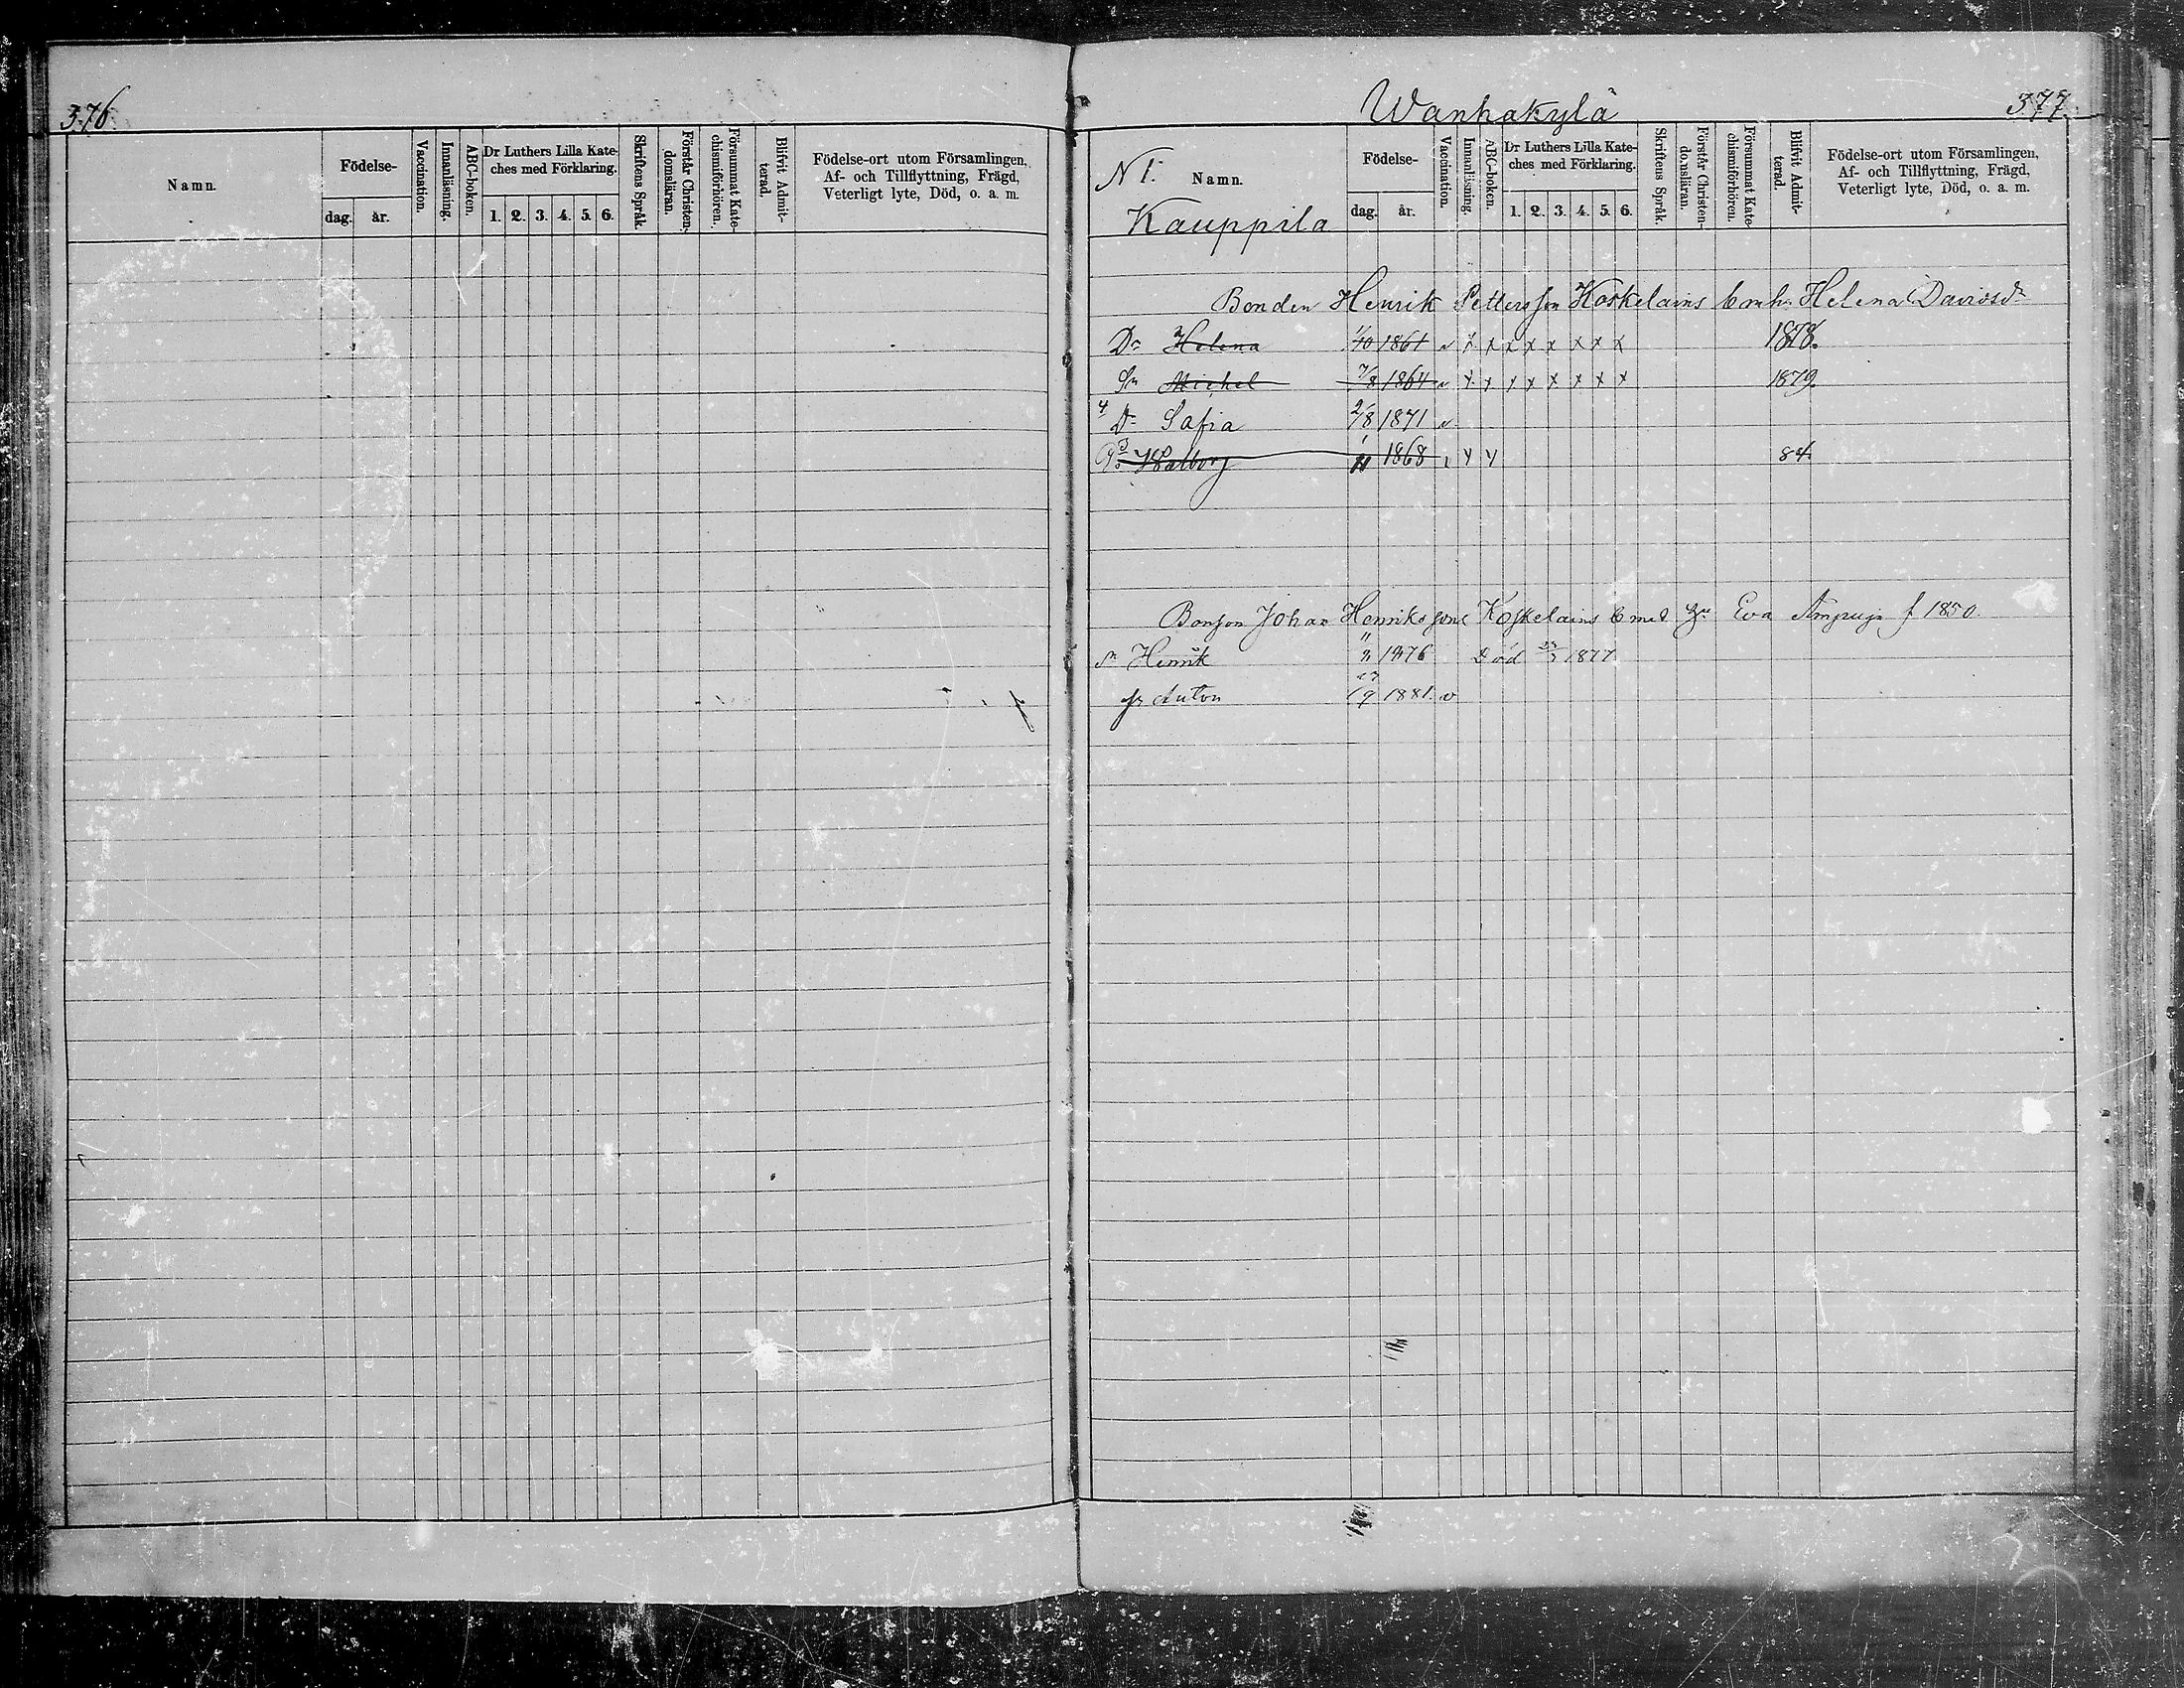 376
Namn.
Födelse-
dag.
år.
Vaccination.
Innanläsning.
ABC-boken.
Dr Luthers Lilla Kate-
ches med Förklaring.
1. 2. 3. 4. 5. 6.
Skriftens Språk.
Förstår Christen-
domsläran.
Försummat Kate-
chismiförhören.
Blifvit Admit-
terad.
Födelse-ort utom Församlingen,
Af- och Tillflyttning, Frägd,
Veterligt lyte, Död, o. a. m.
Wanhakylä
377.
N 1.
Namn.
Kauppila
Födelse-
dag.
år.
Vaccination.
Innanläsning.
ABC-boken.
Dr Luthers Lilla Kate-
ches med Förklaring.
1. 2. 3. 4. 5. 6.
Skriftens Språk.
Förstår Christen-
domsläran.
Försummat Kate-
chismiförhören.
Blifvit Admit-
terad.
Födelse-ort utom Församlingen,
Af- och Tillflyttning, Frägd,
Veterligt lyte, Död, o. a. m.
Bonden Henrik Pettersson Koskelains Helena Davidsdr
Dr Helena 1/10 1861 v x x x x x x x x 1878.
Sn Michel 7/8 1864 v x x x x x x x x 1879.
4 Dr Safia 2/8 1871 v
3 Walborg 1868 x x 84.
Bonson Johan Henrikssons Koskelains Eva f 1850.
sn Henrik 1876 Död 1877.
sn Anton 9 1881. v